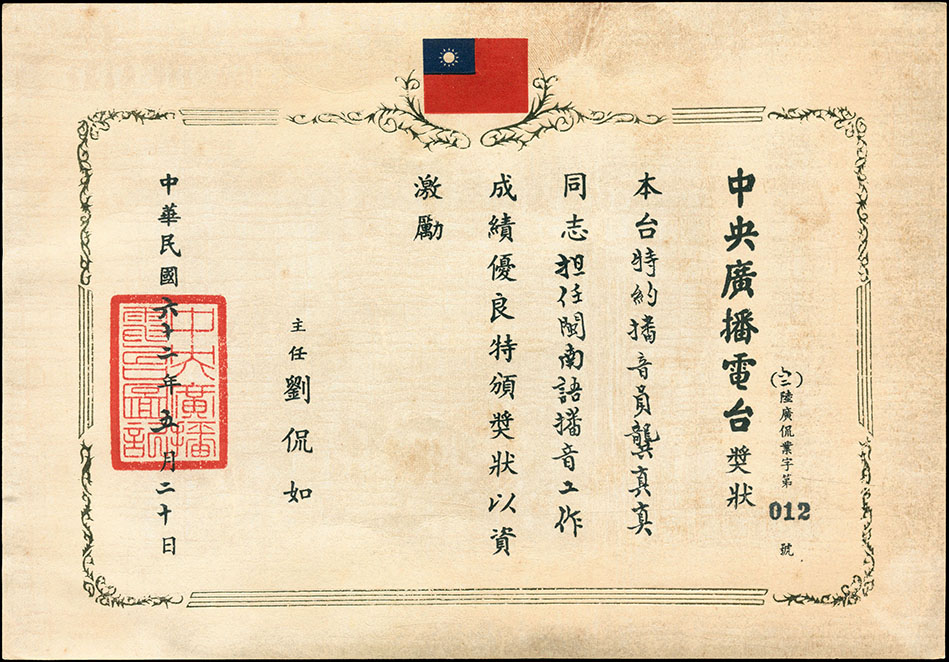 (六二)陸廣侃業字第012號
中央廣播電台獎狀
本台特約播音員龔真真
同志担任閩南語播音工作
成績優良特頒獎狀以資
激勵
主任劉侃如
中華民國六十二年五月二十日
中央廣播
電台圖記